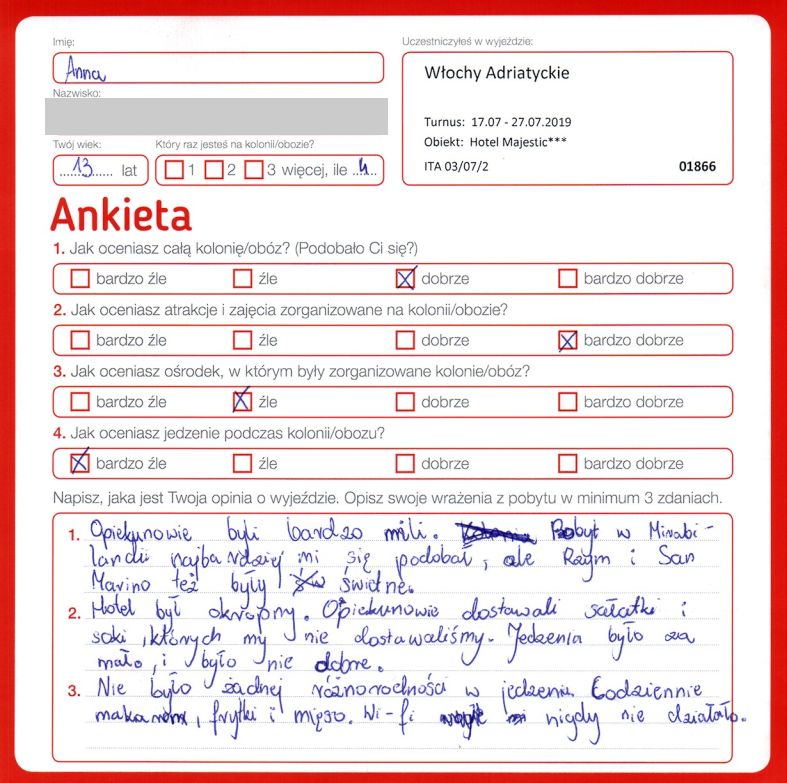 Imię:
Anna
Nazwisko:
Twój wiek:
13 lat
Który raz jesteś na kolonii/obozie?
1 2 3 więcej, ile 4
Uczestniczyłeś w wyjeździe:
Włochy Adriatyckie
Turnus: 17.07 - 27.07.2019
Obiekt: Hotel Majestic***
ITA 03/07/2 01866
Ankieta
1. Jak oceniasz całą kolonię/obóz? (Podobało Ci się?)
bardzo źle źle dobrze bardzo dobrze
2. Jak oceniasz atrakcje i zajęcia zorganizowane na kolonii/obozie?
bardzo źle źle dobrze bardzo dobrze
3. Jak oceniasz ośrodek, w którym były zorganizowane kolonie/obóz?
bardzo źle źle dobrze bardzo dobrze
4. Jak oceniasz jedzenie podczas kolonii/obozu?
bardzo źle źle dobrze bardzo dobrze
Napisz, jaka jest Twoja opinia o wyjeździe. Opisz swoje wrażenia z pobytu w minimum 3 zdaniach.
1. Opiekunowie byli bardzo mili. Pobyt w Mirabi-
landii najbardziej mi się podobał, ale Rzym i San
Marino też były świetne.
2. Hotel był okropny. Opiekunowie dostawali sałatki i
soki, których my nie dostawaliśmy. Jedzenia było za
mało, i było nie dobre.
3. Nie było żadnej różnorodności w jedzeniu. Codziennie
makaron, frytki i mięso. Wi-fi nigdy nie działało.